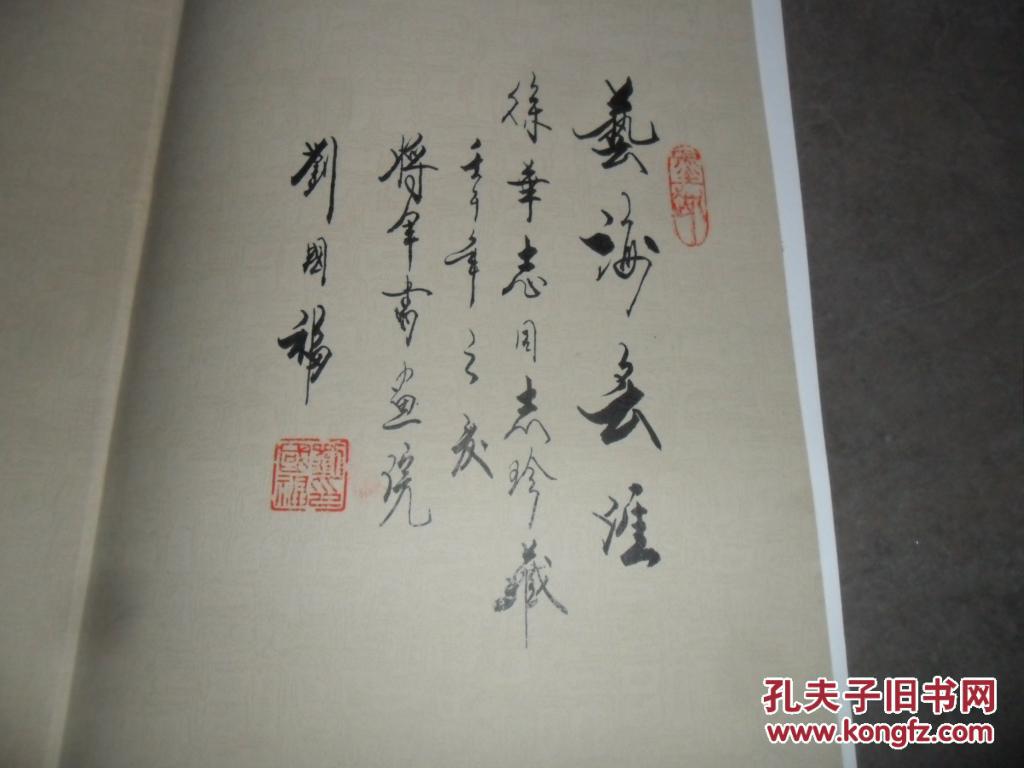 藝海無涯
徐華志同志珍藏
壬午年之夏
將軍書畫院
劉國福
孔夫子旧书网
www.kongfz.com